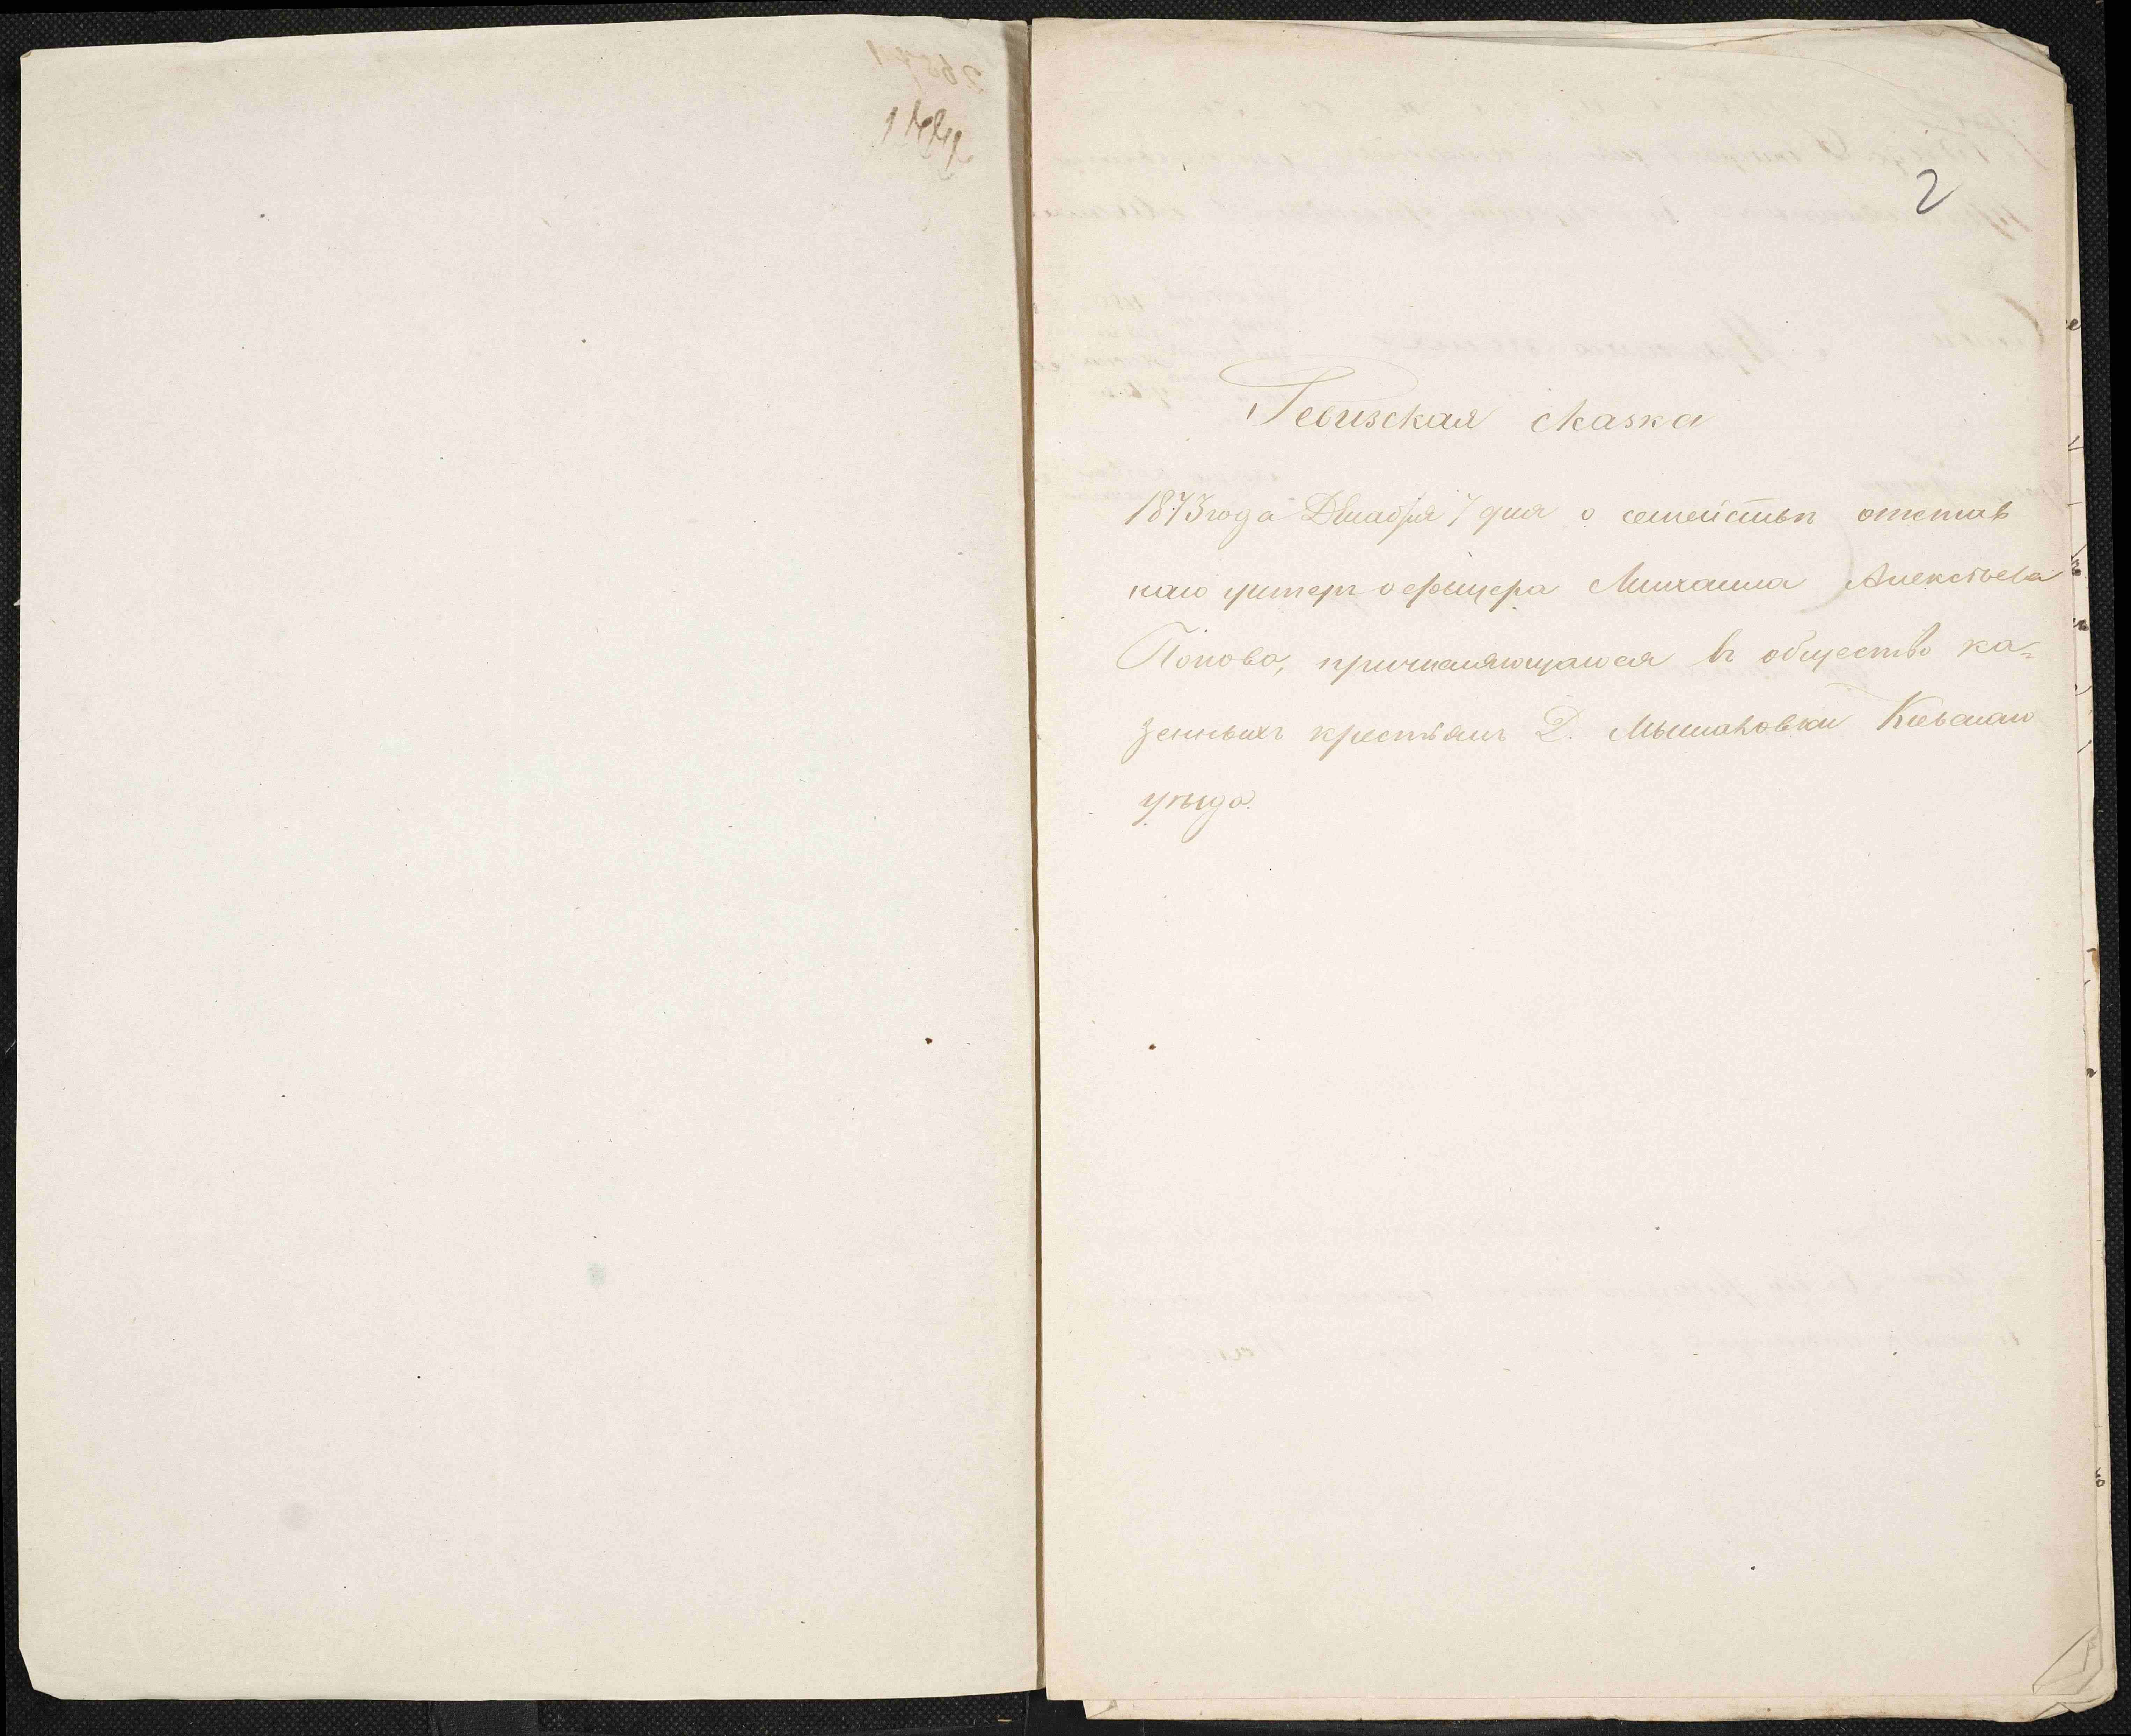 2
Ревизская сказка
1873 года Декабря 7 дня о семействѣ отстав
наго унтеръ офицера Михаила Алексѣева
Попова, причисляющагося въ общество ка=
зенныхъ крестьянъ Д. Мышаковки Кіевскаго
уѣзда.